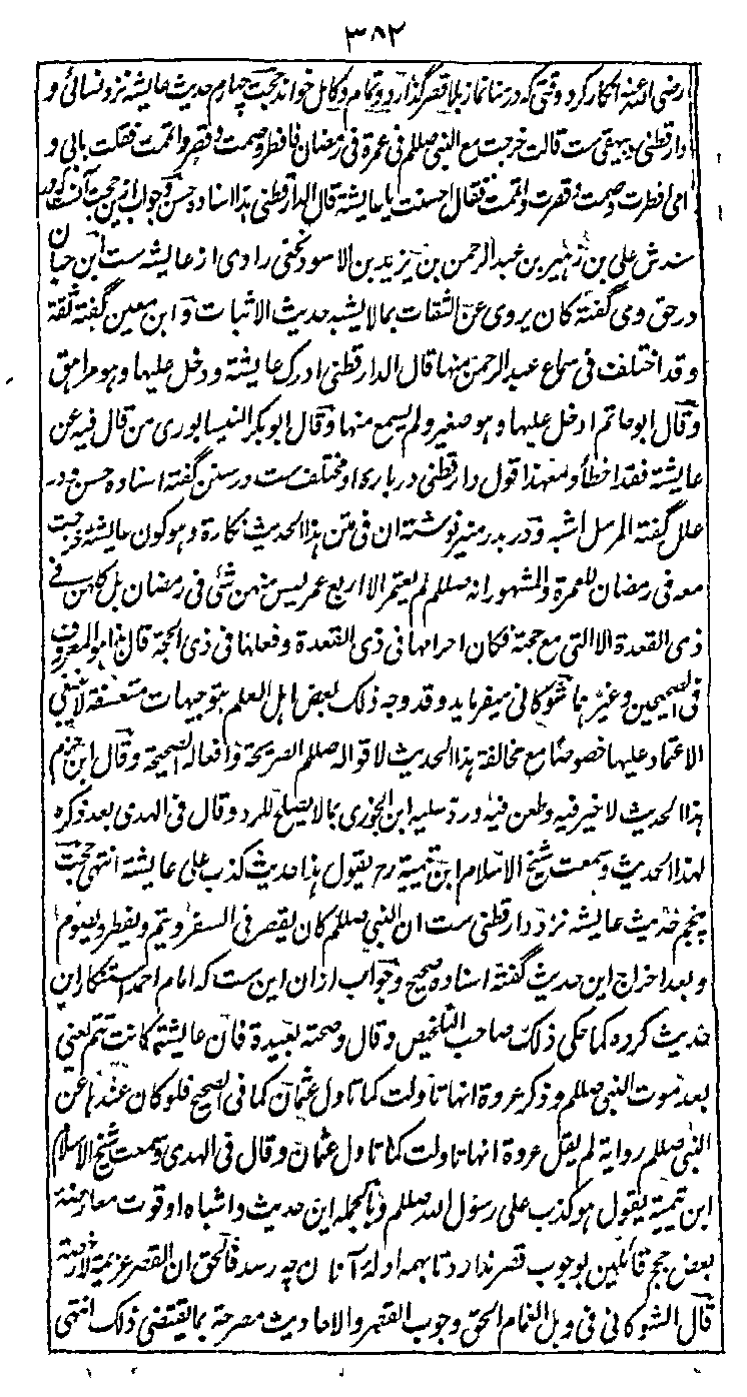 ۳۸۲
رضی الله عنه انکار کرد وقتی که در منا نماز بلا قصر گذارد و تمام و کامل خواند حجت چهارم حدیث عایشه نزد نسائی و
دارقطنی و بیهقی ست قالت خرجت مع النبی صللم فی عمرة فی رمضان فافطر و صمت و قصر و اتممت فقلت بابی و
امی افطرت و صمت و قصرت و اتممت فقال احسنت یا عایشة قال الدارقطنی هذا اسناد حسن و جواب ازین حجت آنست که در
سندش علی بن زهیر بن عبد الرحمن بن یزید بن الاسود نخعی راوی از عایشه ست ابن حبان
در حق وی گفته کان یروی عن الثقات بما لا یشبه حدیث الاثبات و ابن معین گفته ثقة
و قد اختلف فی سماع عبد الرحمن منها قال الدارقطنی ادرک عایشة و دخل علیها و هو مراهق
و قال ابو حاتم ادخل علیها و هو صغیر و لم یسمع منها و قال ابو بکر النیسابوری من قال فیه عن
عایشة فقد اخطأ و معهذا قول دارقطنی درباره او مختلف ست در سنن گفته اسناده حسن و در
علل گفته المرسل اشبه و در بدر منیر نوشته ان فی متن هذا الحدیث نکارة و هو کون عایشة خرجت
معه فی رمضان للعمرة و المشهور انه صللم لم یعتمر الا اربع عمر لیس منهن شئ فی رمضان بل کلهن فی
ذی القعدة الا التی مع حجته فکان احرامها فی ذی القعدة و فعلها فی ذی الحجة قال هذا هو المعروف
فی الصحیحین و غیرهما شوکانی میفرماید و قد وجه ذلک بعض اهل العلم بتوجیهات متعسفة لا ینبغی
الاعتماد علیها خصوصا مع مخالفة هذا الحدیث لاقواله صللم الصریحة و افعاله الصحیحة و قال ابن حزم
هذا الحدیث لا خیر فیه و طعن فیه و رد علیه ابن الجوزی بما لا یصلح للرد و قال فی الهدی بعد ذکره
لهذا الحدیث و سمعت شیخ الاسلام ابن تیمیة رح یقول هذا حدیث کذب علی عایشة انتهی حجت
پنجم حدیث عایشه نزد دارقطنی ست ان النبی صللم کان یقصر فی السفر و یتم و یفطر و یصوم
و بعد اخراج این حدیث گفته اسناده صحیح و جواب ازان این ست که امام احمد استنکار این
حدیث کرده کما حکی ذلک صاحب التلخیص و قال و صحته بعیدة فان عایشة کانت تتم یعنی
بعد موت النبی صللم و ذکر عروة انها تاولت کما تاول عثمان کما فی الصحیح فلو کان عندها عن
النبی صللم روایة لم یقل عروة انها تاولت کما تاول عثمان و قال فی الهدی و سمعت شیخ الاسلام
ابن تیمیة یقول هو کذب علی رسول الله صللم و بالجمله این حدیث و اشباه او قوت معارضه
بعض حجج قائلین بوجوب قصر ندارد تا بهمه ادله آنان چه رسد فالحق ان القصر عزیمة لا رخصة
قال الشوکانی فی وبل الغمام الحق وجوب القصر و الاحادیث مصرحة بما یقتضی ذلک انتهی